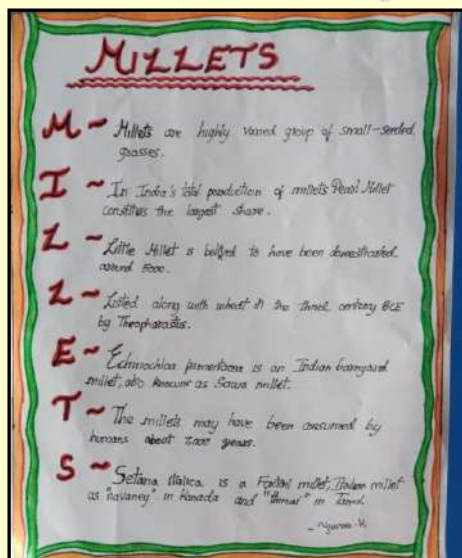 MILLETS
M ~ Millets are highly varied group of small-seeded
grasses.
I ~ In India's total production of millets Pearl Millet
constitutes the largest share.
L ~ Little Millet is to have been domesticated
around 5000.
L ~ Listed along with wheat in the third century BCE
by
E ~ Echinochloa is an Indian barnyard
millet, also known as Sawa millet.
T ~ The millets may have been consumed by
humans about 7000 years.
S ~ Setaria italica is a Foxtail millet, Italian millet
as "navaney" in Kanada and in Tamil.